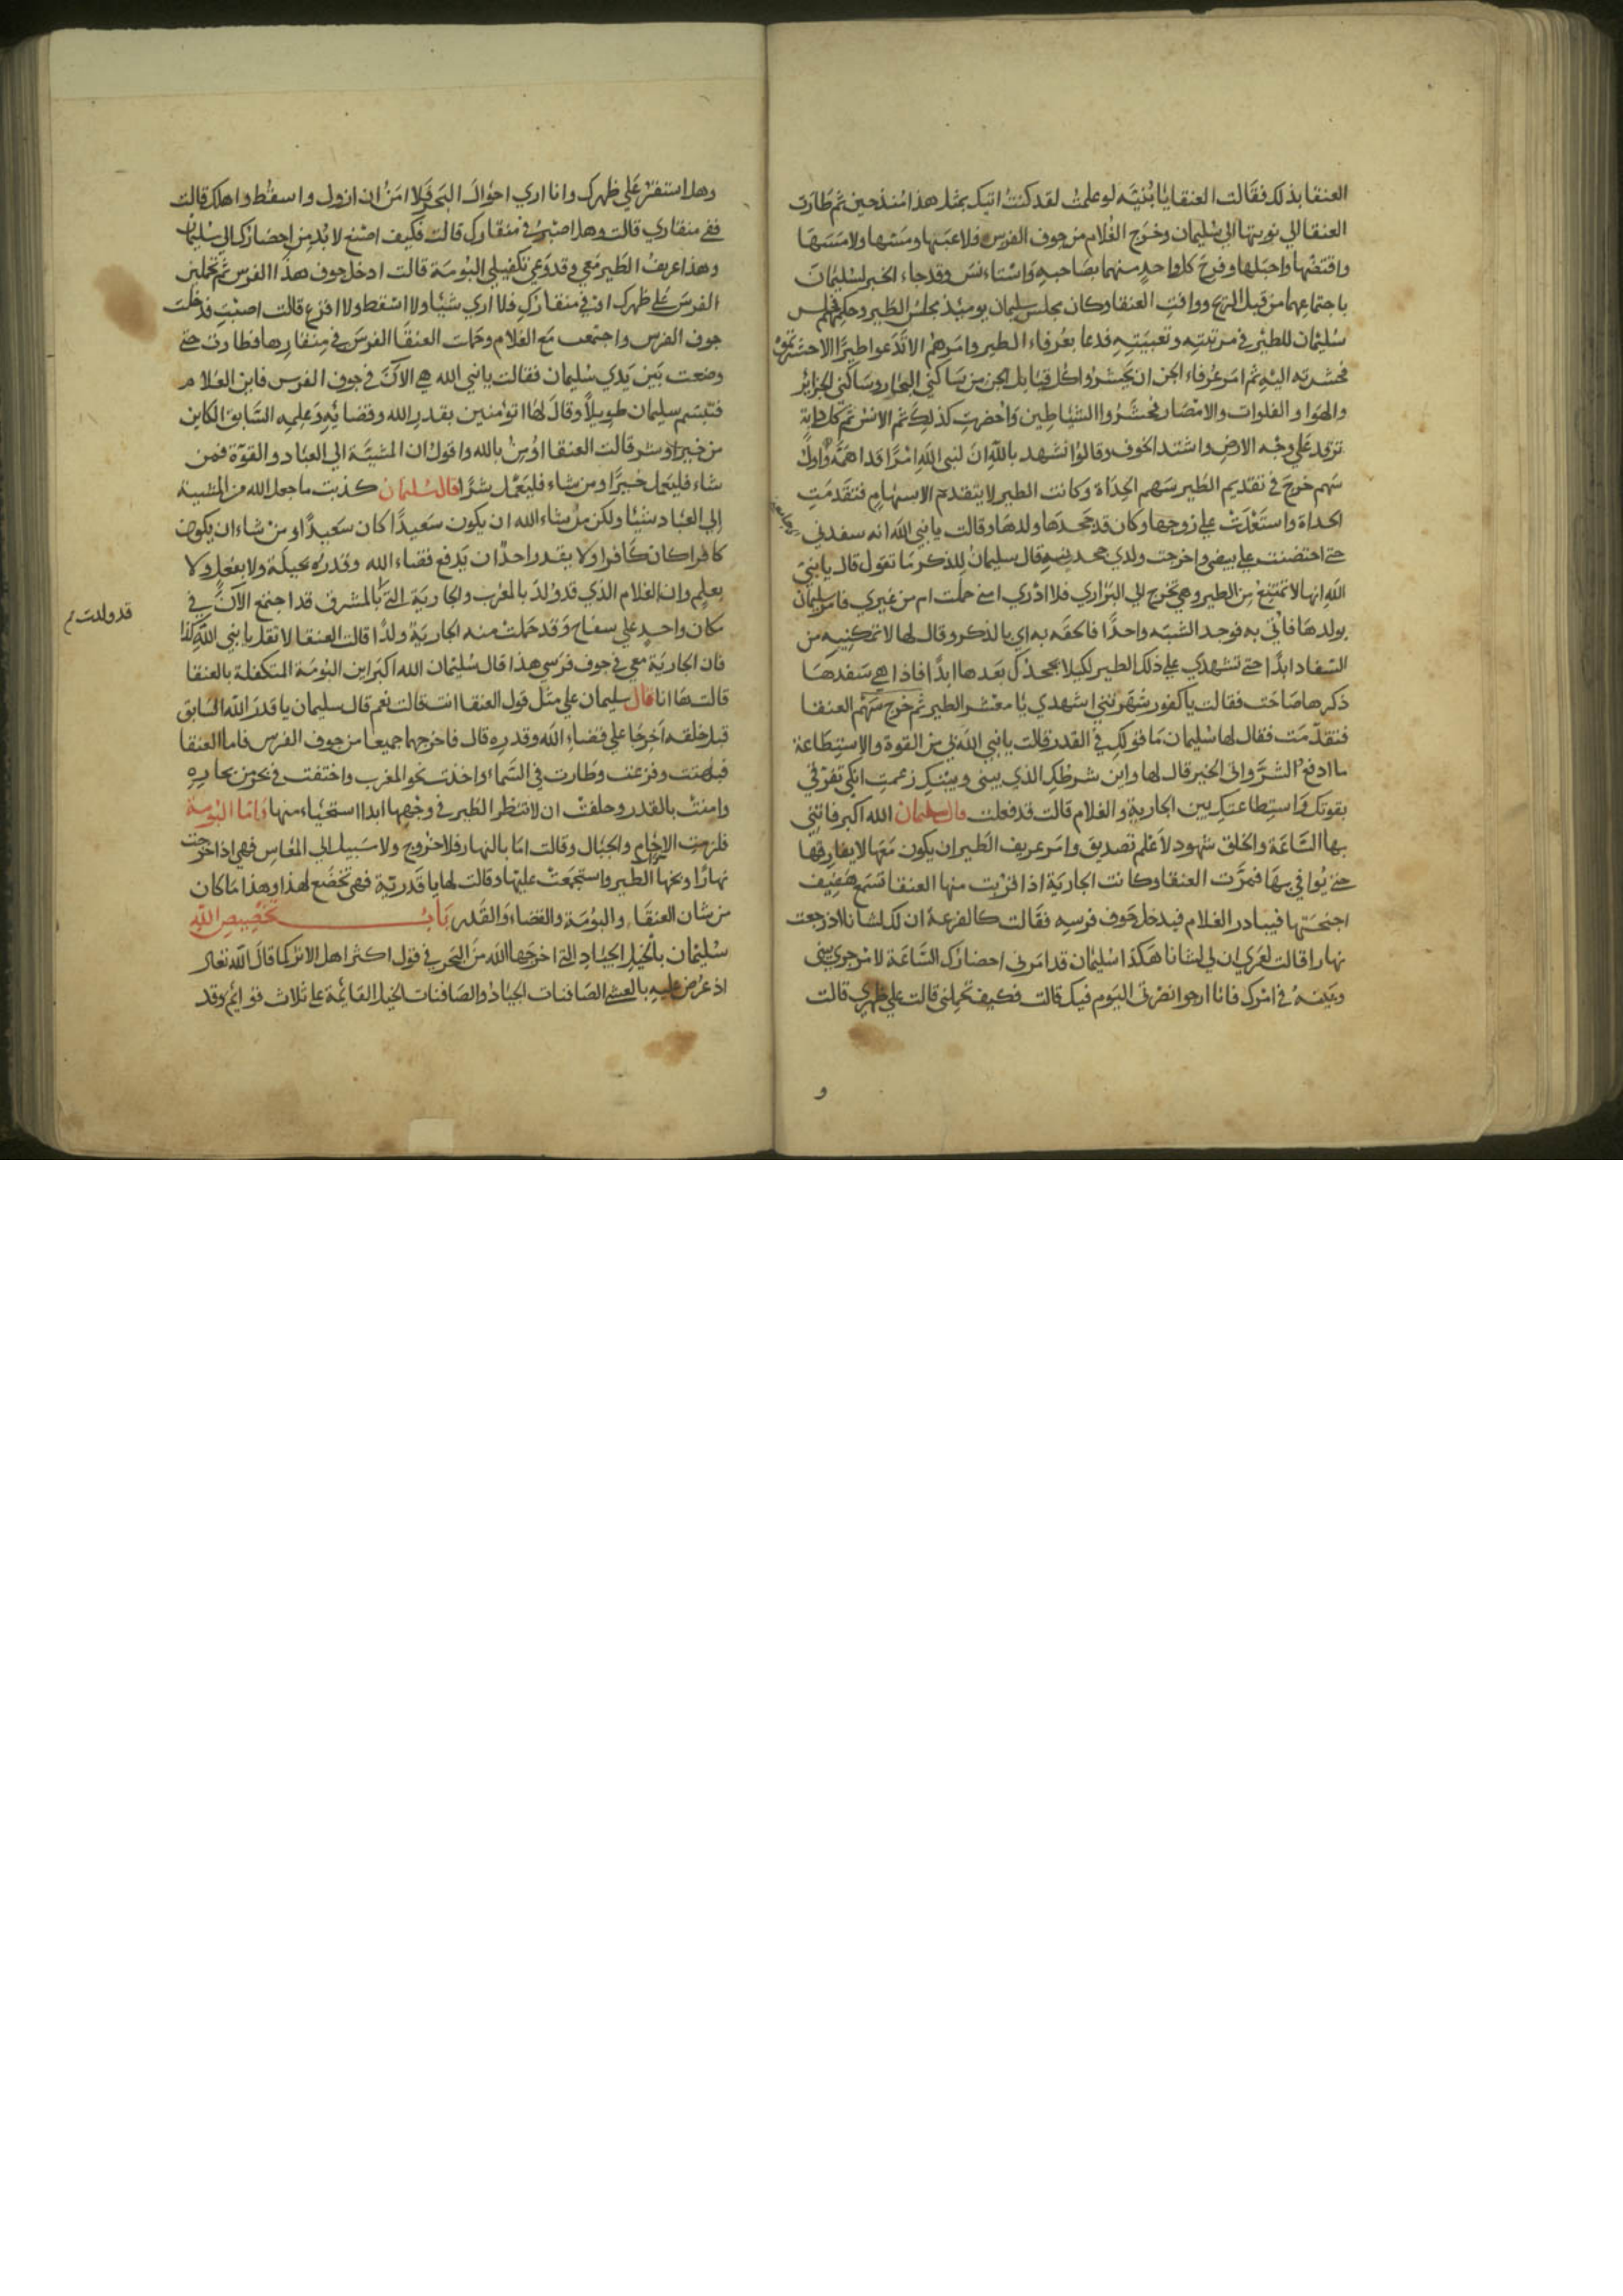 العنقا بذلك فقالت العنقا يا بنية لو علمت لقد كنت اتيك بمثل هذا منذ حين ثم طارت
العنقا الي نوبتها الي سليمان وخرج الغلام من جوف الفرس فلاعبها ومسها ولامسها
وافتضها واحبلها وفرح كل واحد منهما بصاحبه واستانس وقد جاء الخبر لسليمان
باجتماعهما من قبل الريح ووافت العنقا وكان مجلس سليمان يوميذ مجلس الطير وحكمهم فجلس
سليمان للطير في مرتبته وتعبيته فدعا بعرفاء الطير وامرهم الا تدعوا طيرا الا حشرتموه
فحشرته اليه ثم امر عرفاء الجن ان يحشروا كل قبايل الجن من ساكني البحار وساكني الجزائر
والهوا والفلوات والامصار فحشروا الشياطين واحضرت كذلك ثم الانس ثم كل دابة
علي وجه الارض واشتد الخوف وقالوا نشهد بالله ان لنبي الله امرا قد اهمه واول
سهم خرج في تقديم الطير سهم الحداة وكانت الطير لا يتقدم الا بسهام فتقدمت
الحداة واستعدت علي زوجها وكان قد جحدها ولدها وقالت يا نبي الله انه سفدني
حتي احتضنت علي بيضي واخرجت ولدي جحدنيه قال سليمان للذكر ما تقول قال يا نبي
الله انها لا تمتنع من الطير وهي تخرج الي البراري فلا ادري امني حملت ام من غيري فامر سليمان
بولدها فاتي به فوجد الشبه واحدا فالحقه به اي بالذكر وقال لها لا تمكنيه من
السفاد ابدا حتي تشهدي علي ذلك الطير لكيلا يجحدك بعدها ابدا فاذا هي سفدها
ذكرها صاحت فقالت يا كفور شهرتني اشهدي يا معشر الطير ثم خرج سهم العنقا
فتقدمت فقال لها سليمان ما قولك في القدر قالت يا نبي الله لي من القوة والاستطاعة
ما ادفع الشر واتي الخير قال لها واين شرطك الذي بيني وبينك زعمت انكي تفرقي
بقوتك واستطاعتك بين الجارية والغلام قالت قد فعلت قال سليمان الله اكبر فاتيني
بها الساعة والخلق شهود لاعلم تصديق وامر عريف الطير ان يكون معها لا يفارقها
حتي يوافي بها فمرت العنقا وكانت الجارية اذا قربت منها العنقا تسمع حفيف
اجنحتها فيبادر الغلام فيدخل جوف فرسه فقالت كالفزعة ان لك لشانا اذ رجعت
نهارا قالت لعمري ان لي لشانا هكذا سليمان قد امرني احضارك الساعة لامر جري بيني
وبينه في امرك فانا ارجوا نصرتي اليوم فيك قالت فكيف تحملني قالت علي ظهري قالت
و
وهل استقر علي ظهرك وانا اري اهوال البحر فلا امن ان ازول واسقط واهلك قالت
ففي منقاري قالت وهل اصبر في منقارك قالت فكيف اصنع لا بد من احضارك الي سليمان
وهذا عريف الطير معي وقد دعي بكفيلي البومة قالت ادخل جوف هذا الفرس ثم تحملين
الفرس علي ظهرك او في منقارك فلا اري شيئا ولا اسقط ولا افزع قالت اصبت فدخلت
جوف الفرس واجتمعت مع الغلام وحملت العنقا الفرس في منقارها فطارت حتي
وضعت بين يدي سليمان فقالت يا نبي الله هي الان في جوف الفرس فاين الغلام
فتبسم سليمان طويلا وقال لها اتؤمنين بقدر الله وقضائه وعلمه السابق الكاين
من خير او شر قالت العنقا اؤمن بالله واقول ان المشية الي العباد والقوة فمن
شاء فليعمل خيرا ومن شاء فليعمل شرا قال سليمان كذبت ما جعل الله من المشيية
الي العباد شيئا ولكن من شاء الله ان يكون سعيدا كان سعيدا ومن شاء ان يكون
كافرا كان كافرا ولا يقدر احد ان يدفع قضاء الله وقدره بحيلة ولا بفعل ولا
بعلم وان الغلام الذي قد ولد بالمغرب والجارية التي بالمشرق قد اجتمع الان في
قد ولدت
مكان واحد علي سفاح وقد حملت منه الجارية ولدا قالت العنقا لا تقل يا نبي الله كذا
فان الجارية معي في جوف فرسي هذا قال سليمان الله اكبر اين البومة المتكفلة بالعنقا
قالت ها انا قال سليمان علي مثل قول العنقا انت قالت نعم قال سليمان يا قدر الله السابق
قبل خلقه اخرجا علي قضاء الله وقدره قال فاخرجهما جميعا من جوف الفرس فاما العنقا
فبهتت وفزعت وطارت في السما واخذت نحو المغرب واختفت في بحر من بحاره
وامنت بالقدر وحلفت ان لا تنظر الطير في وجهها ابدا استحياء منها واما البومة
فلزمت الاجام والجبال وقالت اما بالنهار فلا خروج ولا سبيل الي المعاش فهي اذا خرجت
نهارا وبخها الطير واستجمعت عليها وقالت لها يا قدرية فهي تخضع لهذا وهذا ما كان
من شان العنقا والبومة والقضاء والقدر باب تخصيص الله
سليمان بالخيل الجياد التي اخرجها الله من البحر في قول اكثر اهل الاثر كما قال الله تعالي
اذ عرض عليه بالعشي الصافنات الجياد والصافنات الخيل القائمة علي ثلاث قوائم وقد